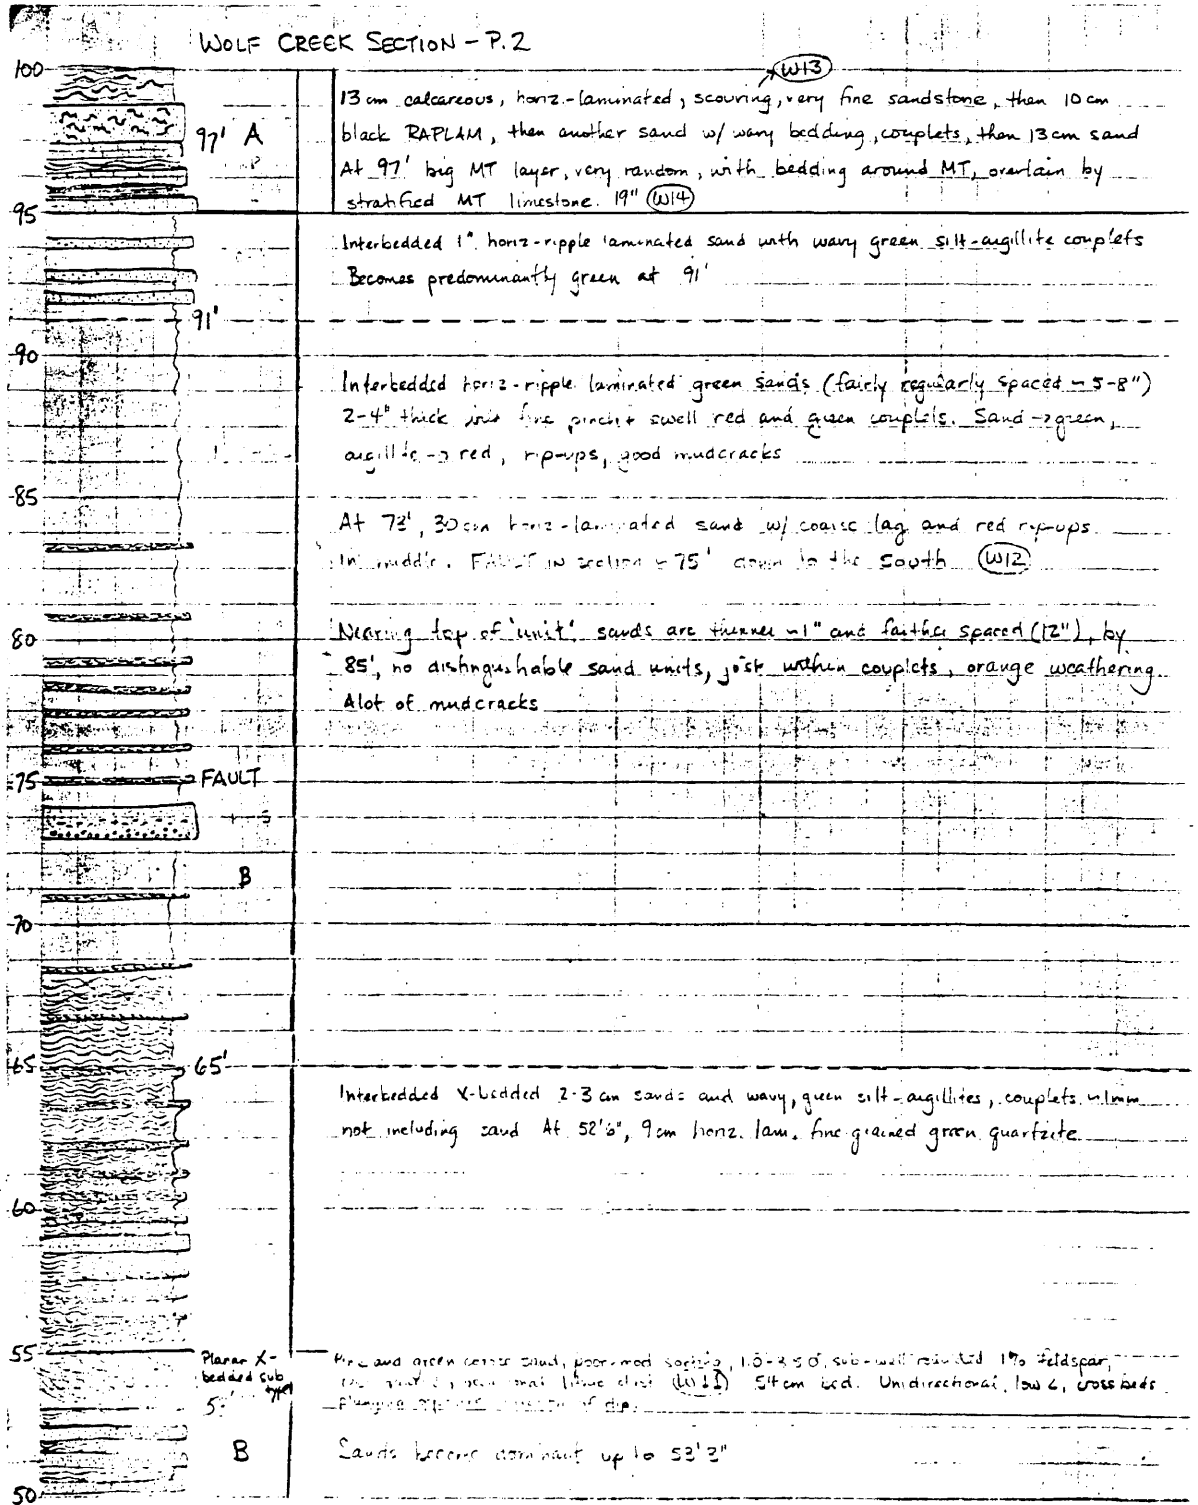 WOLF CREEK SECTION - P.2
100
W13
13 cm calcareous, horiz.-laminated, scouring, very fine sandstone, then 10 cm
black RAPLAM, then another sand w/ wavy bedding, couplets, then 13 cm sand
97' A
At 97' big MT layer, very random, with bedding around MT, overlain by
stratified MT limestone. 19" W14
95
Interbedded 1" horiz-ripple laminated sand with wavy green silt-argillite couplets
Becomes predominantly green at 91'
91'
90
Interbedded horiz-ripple laminated green sands (fairly regularly spaced ~ 5-8")
2-4" thick fine pinch + swell red and green couplets. Sand -> green,
argillite -> red, rip-ups, good mudcracks
85
At 73', 30 cm horiz-laminated sand w/ coarse lag and red rip-ups
In middle. FAULT IN section ~ 75' down to the South W12
80
Nearing top of 'unit' sands are thinner ~1" and farther spaced (12"), by
85', no distinguishable sand units, just within couplets, orange weathering
Alot of mudcracks
75 FAULT
B
70
65 65'
Interbedded X-bedded 2-3 cm sands and wavy, green silt-argillites, couplets ~1mm
not including sand At 52'6", 9cm horiz. lam. fine grained green quartzite
60
55
Planar X-
bedded sub
type
and green coarse sand, poor-mod sorting, sub-well rounded 1% feldspar,
W11 54 cm bed. Unidirectional, low ∠, cross beds
of dip.
B
Sands become dominant up to 53'3"
50